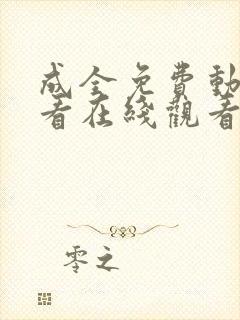 成全免費動
看在綫觀看
零之